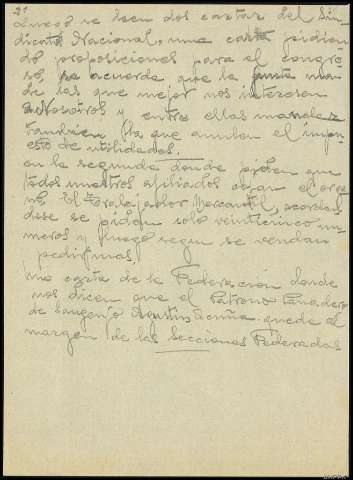 2º
Luego se leen dos cartas del Sin-
dicato Nacional, una carta pidien-
do proposiciones para el congre-
so, se acuerda que la junta man-
de las que mejor nos interesen
a nosotros y entre ellas mandar
tambien la que anulan el impu-
esto de utilidades.
en la segunda donde piden que
todos nuestros afiliados cojan el orga-
no, El Trabajador Mercantil, acordan-
dose se pidan solo veinticinco nu-
meros y luego segun se vendan
pedir mas.
Una carta de la Federacion donde
nos dicen que el Patrono Panadero
de Sangenjo Agustin Acuña quede al
margen de las Secciones Federadas